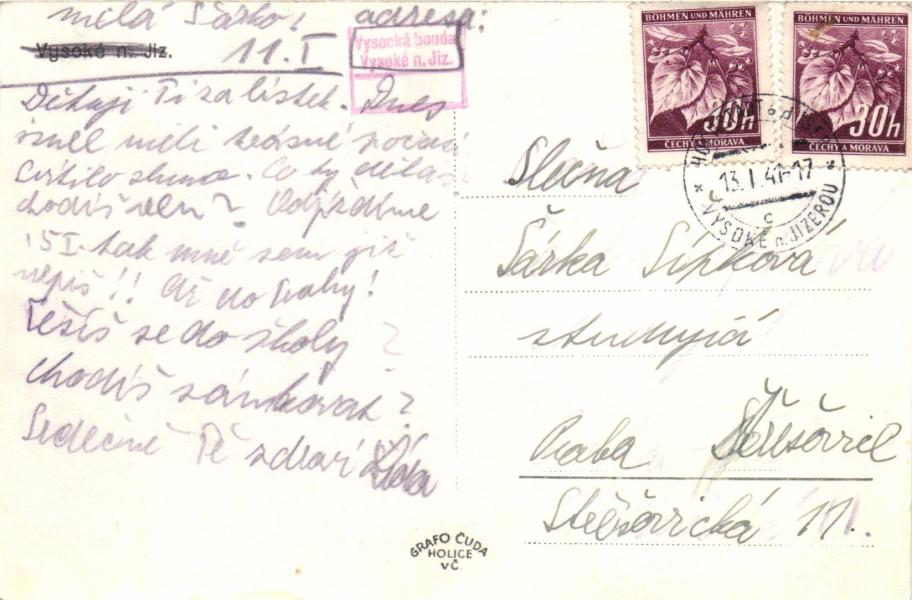 milá Šárko! adresa:
Vysoké n. Jiz. 11.I
Vysocká bouda
Vysoké n. Jiz.
Děkuji Ti za lístek. Dnes
sme měli krásné počasí
svítilo slunce. Co ty děláš
chodíš ven? Odjíždíme
15 I. tak mně sem již
nepiš!! Až do Prahy!
Těšíš se do školy?
Chodíš sánkovat?
Srdečně Tě zdraví
BÖHMEN UND MÄHREN
30h
ČECHY A MORAVA
BÖHMEN UND MÄHREN
30h
ČECHY A MORAVA
13.I.41-17
C
VYSOKÉ n. JIZEROU
Slečna
Šárka Šípková
studující
Praha
11.
GRAFO ČUDA
HOLICE
V Č.